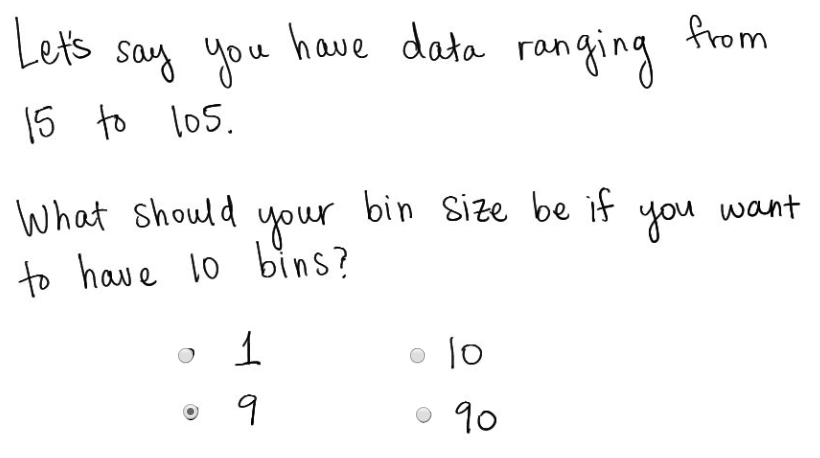 Let's say you have data ranging from
15 to 105.
What should your bin size be if you want
to have 10 bins?
1 10
9 90